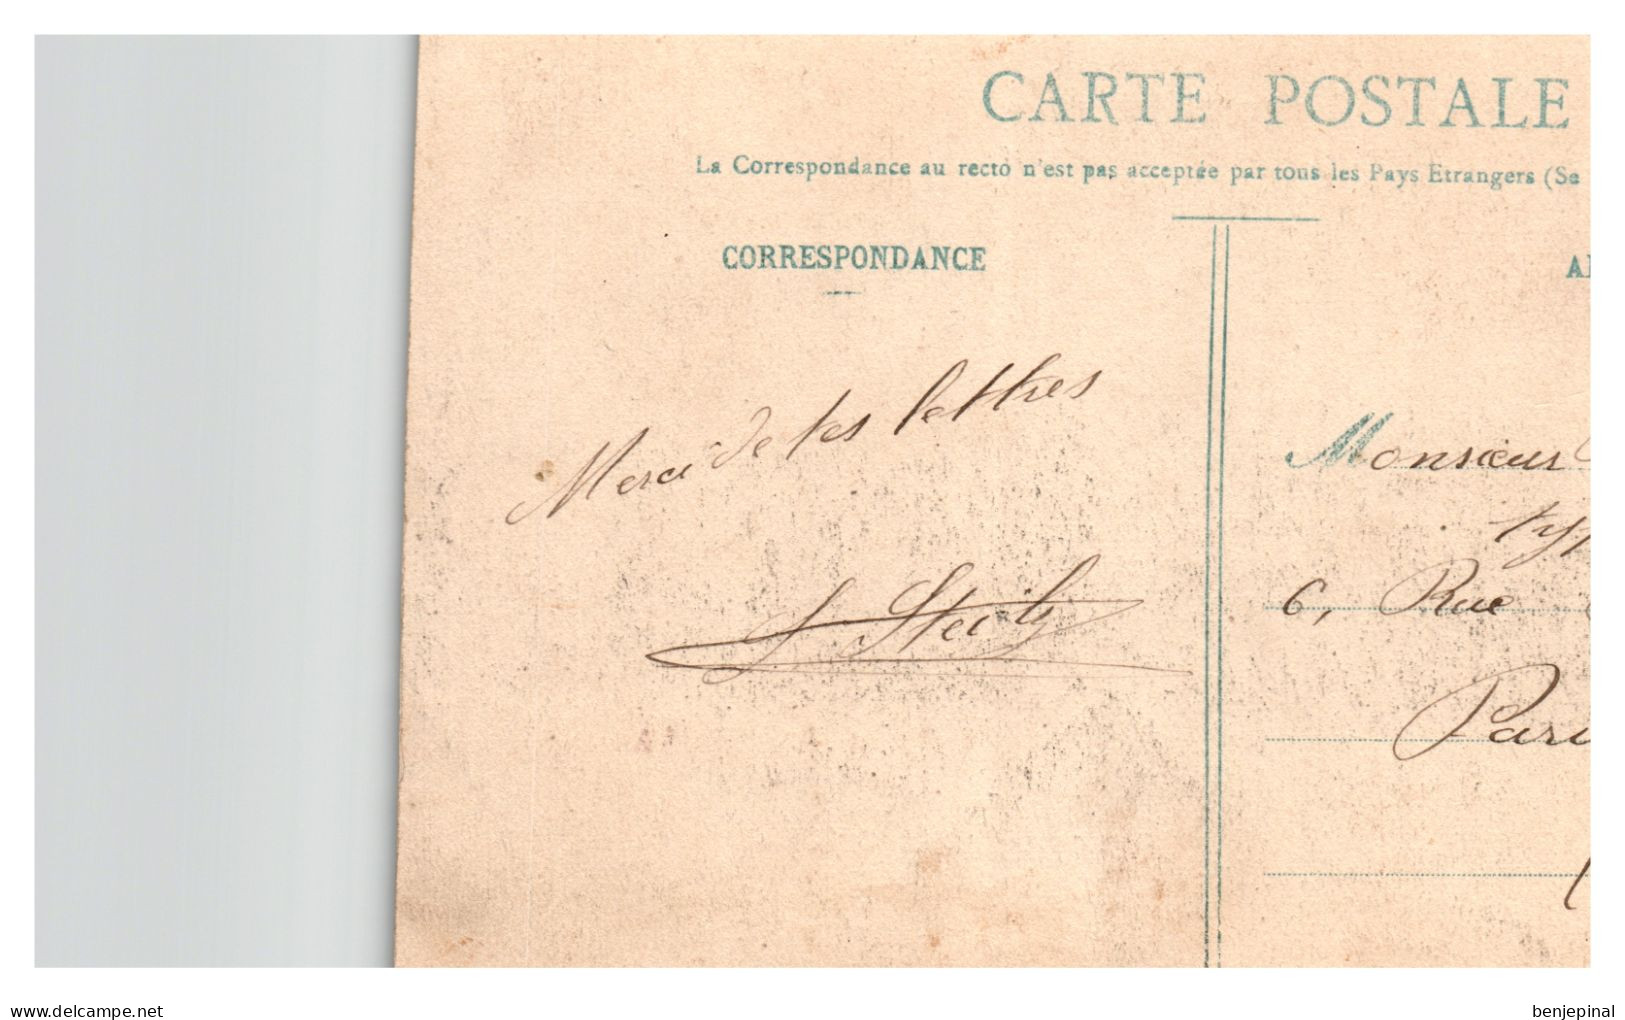 CARTE POSTALE
La Correspondance au recto n'est pas acceptée par tous les Pays Etrangers (Se
CORRESPONDANCE
Merci de tes lettres
Monsieur
typ
6, Rue
Paris
www.delcampe.net
benjepinal